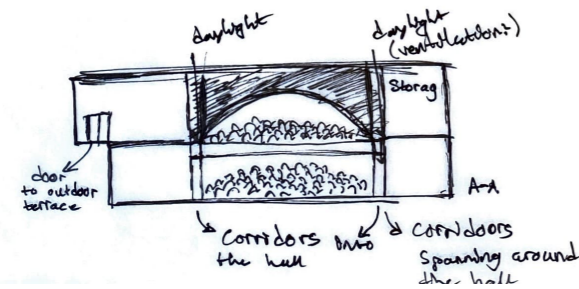 daylight
daylight
(ventilation?)
Storag
door
to outdoor
terrace
A-A
corridors onto
the hall
corridoors
spanning around
the hall